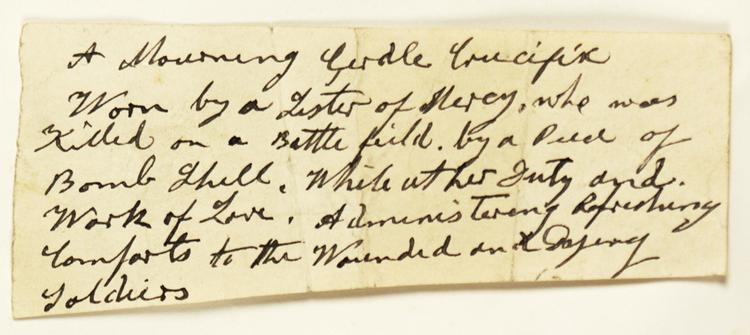 A Mourning Girdle Crucifix
Worn by a Sister of Mercy, who was
Killed on a Battle field. by a Piece of
Bomb Shell, While at her Duty and.
Work of Love. Administering Refreshing
Comforts to the Wounded and Dying
Soldiers